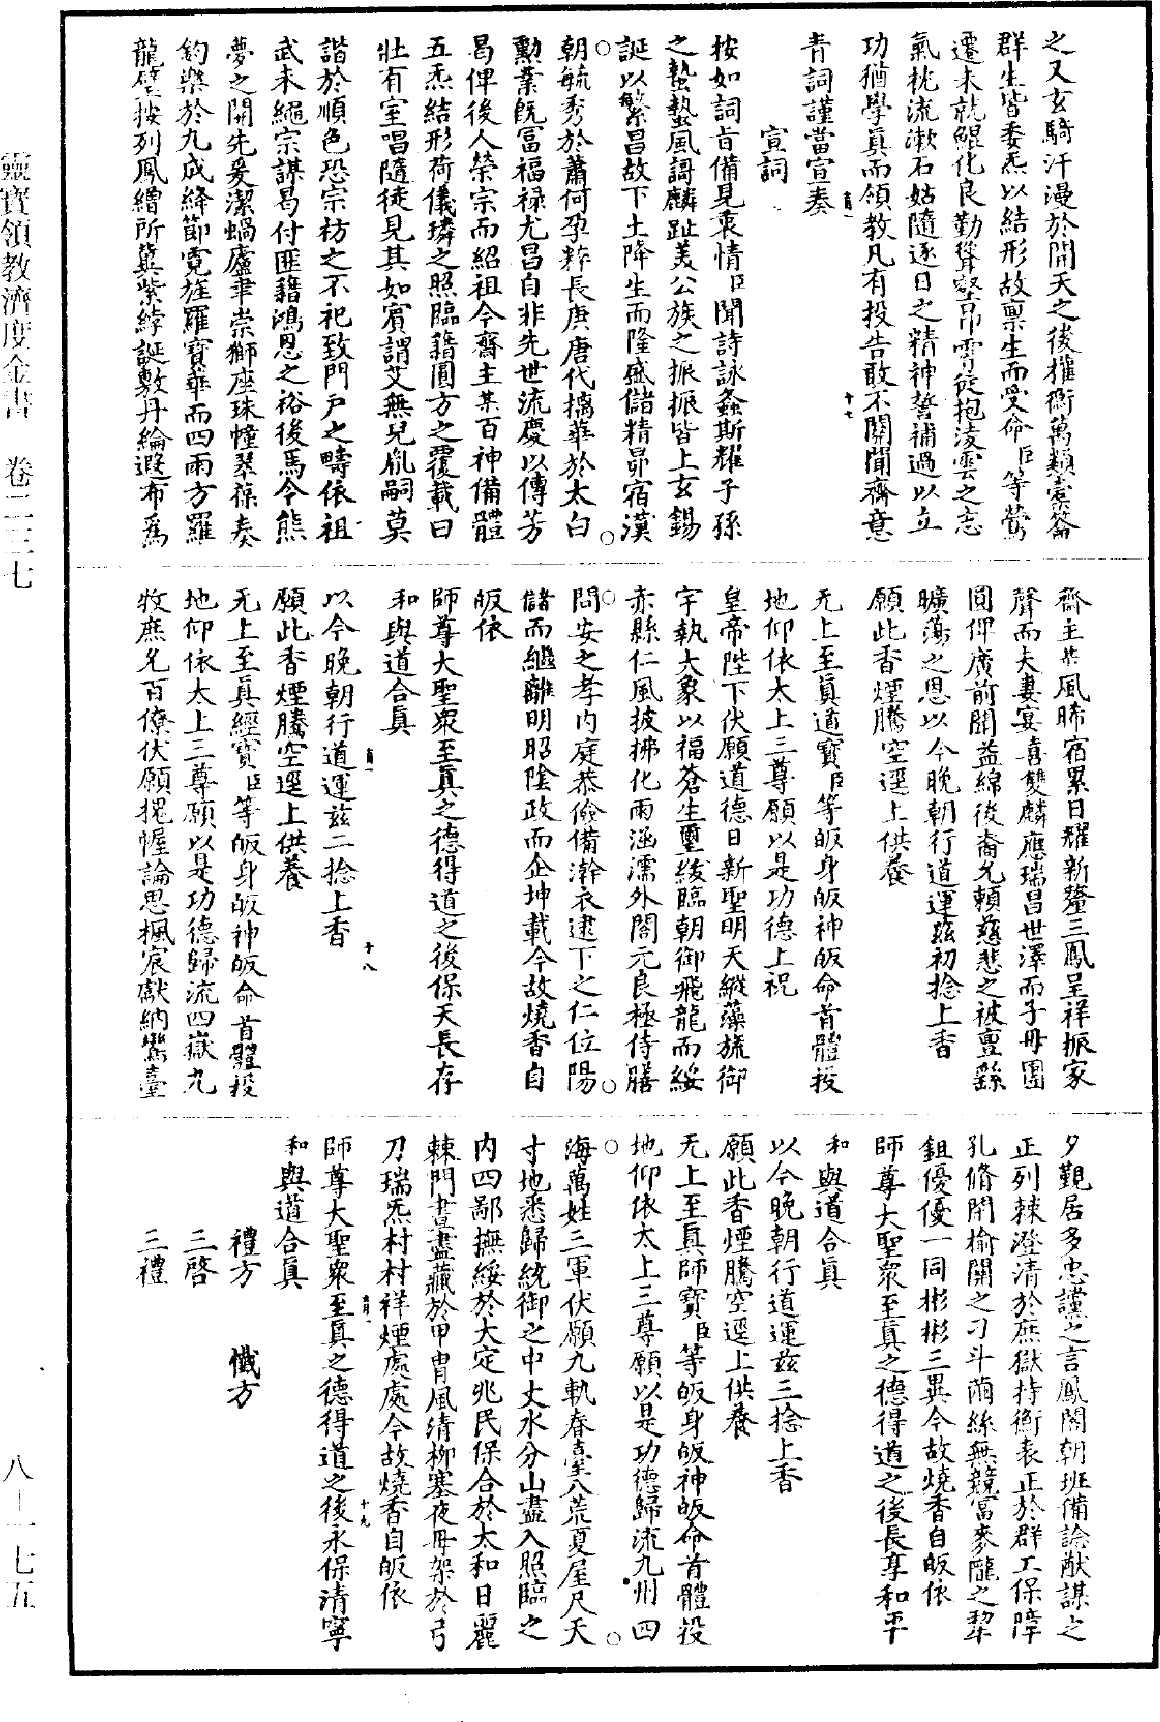 之又玄騎汗漫於開天之後權衡萬類橐籥
群生皆委炁以結形故禀生而受命臣等鶯
遷未就鯤化良勤聳壑昂霄從抱淩雲之志
氣枕流漱石姑隨逐日之精神誓補過以立
功猶學真而領教凡有投告敢不關聞齋意
青詞謹當宣奏
宣詞
按如詞旨備見衷情臣聞詩詠螽斯耀子孫
之蟄蟄風謌麟趾美公族之振振皆上玄錫
誕以繁昌故下土降生而隆盛儲精昴宿漢
朝毓秀於蕭何孕粹長庚唐代摛華於太白
勳業既冨福禄尤昌自非先世流慶以傳芳
曷俾後人榮宗而紹祖今齋主某百神備體
五炁結形荷儀璘之照臨藉圓方之覆載曰
壯有室唱隨徒見其如賓謂艾無兒胤嗣莫
諧於順色恐宗祊之不祀致門戸之疇依祖
武未繩宗謀曷付匪藉鴻恩之裕後焉令熊
夢之開先爰潔蝸廬聿崇獅座珠幢翠葆奏
鈞樂於九成絳節霓旌羅寶華而四雨方羅
龍壁按列鳳繒所兾紫綍誕敷丹綸遐布爲
齋主某風晞宿累日耀新釐三鳳呈祥振家
聲而夫妻宴喜雙麟應瑞昌世澤而子毋團
圓俾廣前開益綿後裔允頼慈悲之被亶繇
曠蕩之恩以今晚朝行道運兹初捻上香
願此香煙騰空逕上供養
无上至真道寶臣等皈身皈神皈命首體投
地仰依太上三尊願以是功德上祝
皇帝陛下伏願道德日新聖明天縱藻旒御
宇執大象以福蒼生璽綬臨朝御飛龍而綏
赤縣仁風披拂化雨涵濡外閤元良極侍膳
問安之孝内庭恭儉備澣衣逮下之仁位陽
儲而繼離明昭陰政而企坤載今故燒香自
皈依
師尊大聖衆至真之德得道之後保天長存
和與道合真
以今晚朝行道運兹二捻上香
願此香煙騰空逕上供養
无上至真經寶臣等皈身皈神皈命首體投
地仰依太上三尊願以是功德歸流四嶽九
牧庶尤百僚伏願槐幄論思楓宸獻納鸞臺
夕覲居多忠讜之言鳳閣朝班備諗猷謀之
正列棘澄清於庶獄持衡表正於群工保障
孔脩閑榆關之刁斗繭絲無競富麥隴之犂
鉏優優一同彬彬三異今故燒香自皈依
師尊大聖衆至真之德得道之後長享和平
和與道合真
以今晚朝行道運兹三捻上香
願此香煙騰空逕上供養
无上至真師寶臣等皈身皈神皈命首體投
地仰依太上三尊願以是功德歸流九州四
海萬姓三軍伏願九軌春臺八荒夏屋尺天
寸地悉歸統御之中丈水分山盡入照臨之
内四鄙撫綏於大定兆民保合於太和日麗
棘門晝盡藏於甲胄風清柳塞夜毋架於弓
刀瑞炁村村祥煙處處今故燒香自皈依
師尊大聖衆至真之德得道之後永保清寧
和與道合真
禮方　懺方
三啓
三禮
靈寶領教濟度金書　卷二三七
八—一七五
十七
十八
十九